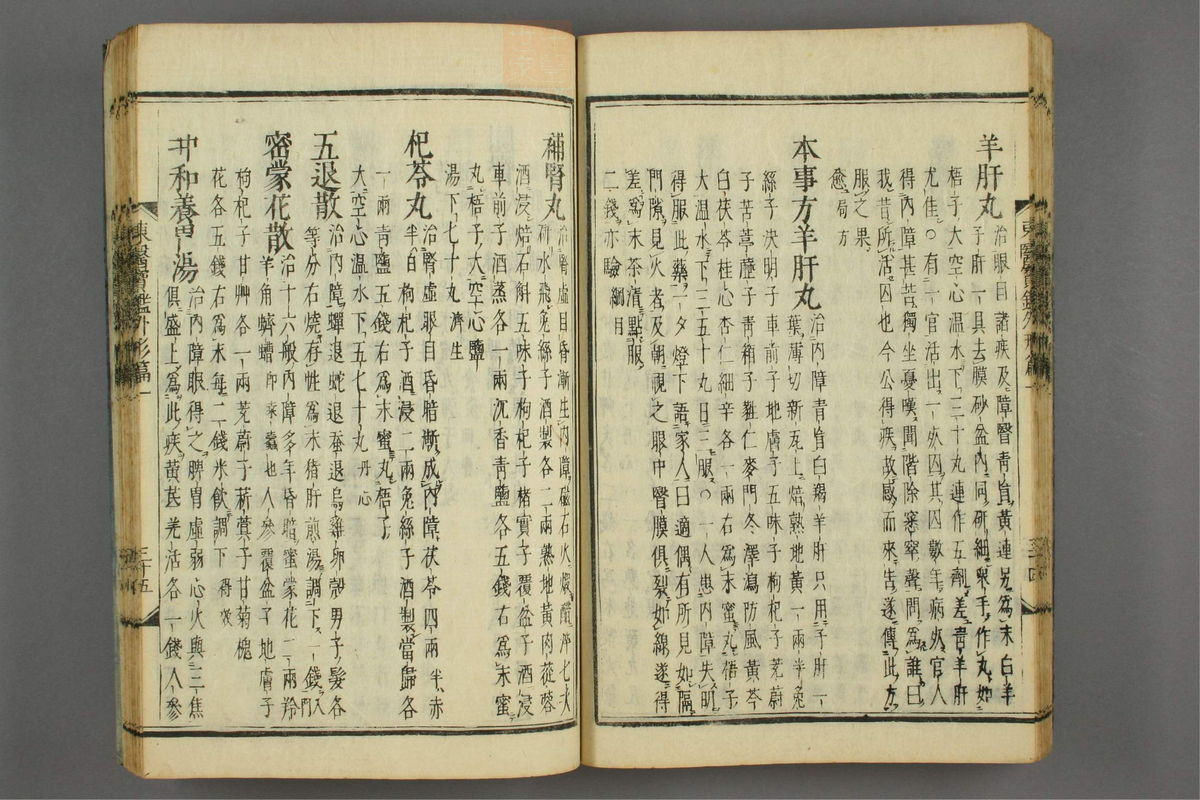 羊肝丸 治眼目諸疾及障瞖青盲黃連另爲末白羊
子肝一具去膜砂盆內同研細衆手作丸如
梧子大空心溫水下三十丸連作五劑差靑羊肝
尤佳○有一官活出一死囚其囚數年病死官人
得內障甚苦獨坐憂嘆聞階除窸窣聲問爲誰曰
我昔所活囚也今公得疾故感而來告遂傳此方
服之果
愈 局方
本事方羊肝丸 治內障靑盲白羯羊肝只用子肝一
葉薄切新瓦上焙熟地黃一兩半兔
絲子決明子車前子地膚子五味子枸杞子茺蔚
子苦葶藶子靑箱子麤仁麥門冬澤瀉防風黃芩
白茯苓桂心杏仁細辛各一兩右爲末蜜丸梧子
大溫水下三五十丸日三服○一人患內障失明
得服此藥一夕燈下語家人曰適偶有所見如隔
門隙見火者及朝視之眼中瞖膜俱裂如線遂得
差爲末茶淸點服
二錢亦驗 綱目
東醫寶鑑外形篇一
補腎丸 治腎虛目昏漸生內障磁石火煆醋淬七次
硏水飛兔絲子酒製各二兩熟地黃肉蓯蓉
酒浸焙石斛五味子枸杞子楮實子覆盆子酒浸
車前子酒蒸各一兩沉香靑鹽各五錢右爲末蜜
丸梧子大空心鹽
湯下七十丸 濟生
杞苓丸 治腎虛眼目昏暗漸成內障茯苓四兩 半赤
半白 枸杞子酒浸二兩兔絲子酒製當歸各
一兩靑鹽五錢右爲末蜜丸梧子
大空心溫水下五七十丸 丹心
五退散 治內障蟬退蛇退蚕退烏雞卵殼男子髮各
等分右燒存性爲末猪肝煎湯調下一錢 入門
密蒙花散 治十六般內障多年昏暗蜜蒙花二兩羚
羊角蠐螬 卽桒蠹也 人參覆盆子地膚子
枸杞子甘艸各一兩茺蔚子菥蓂子甘菊槐
花各五錢右爲末每二錢米飮調下 得效
冲和養胃湯 治內障眼得之脾胃虛弱心火與三焦
俱盛上爲此疾黃芪羌活各一錢人參
東醫寶鑑外形篇一
三十五